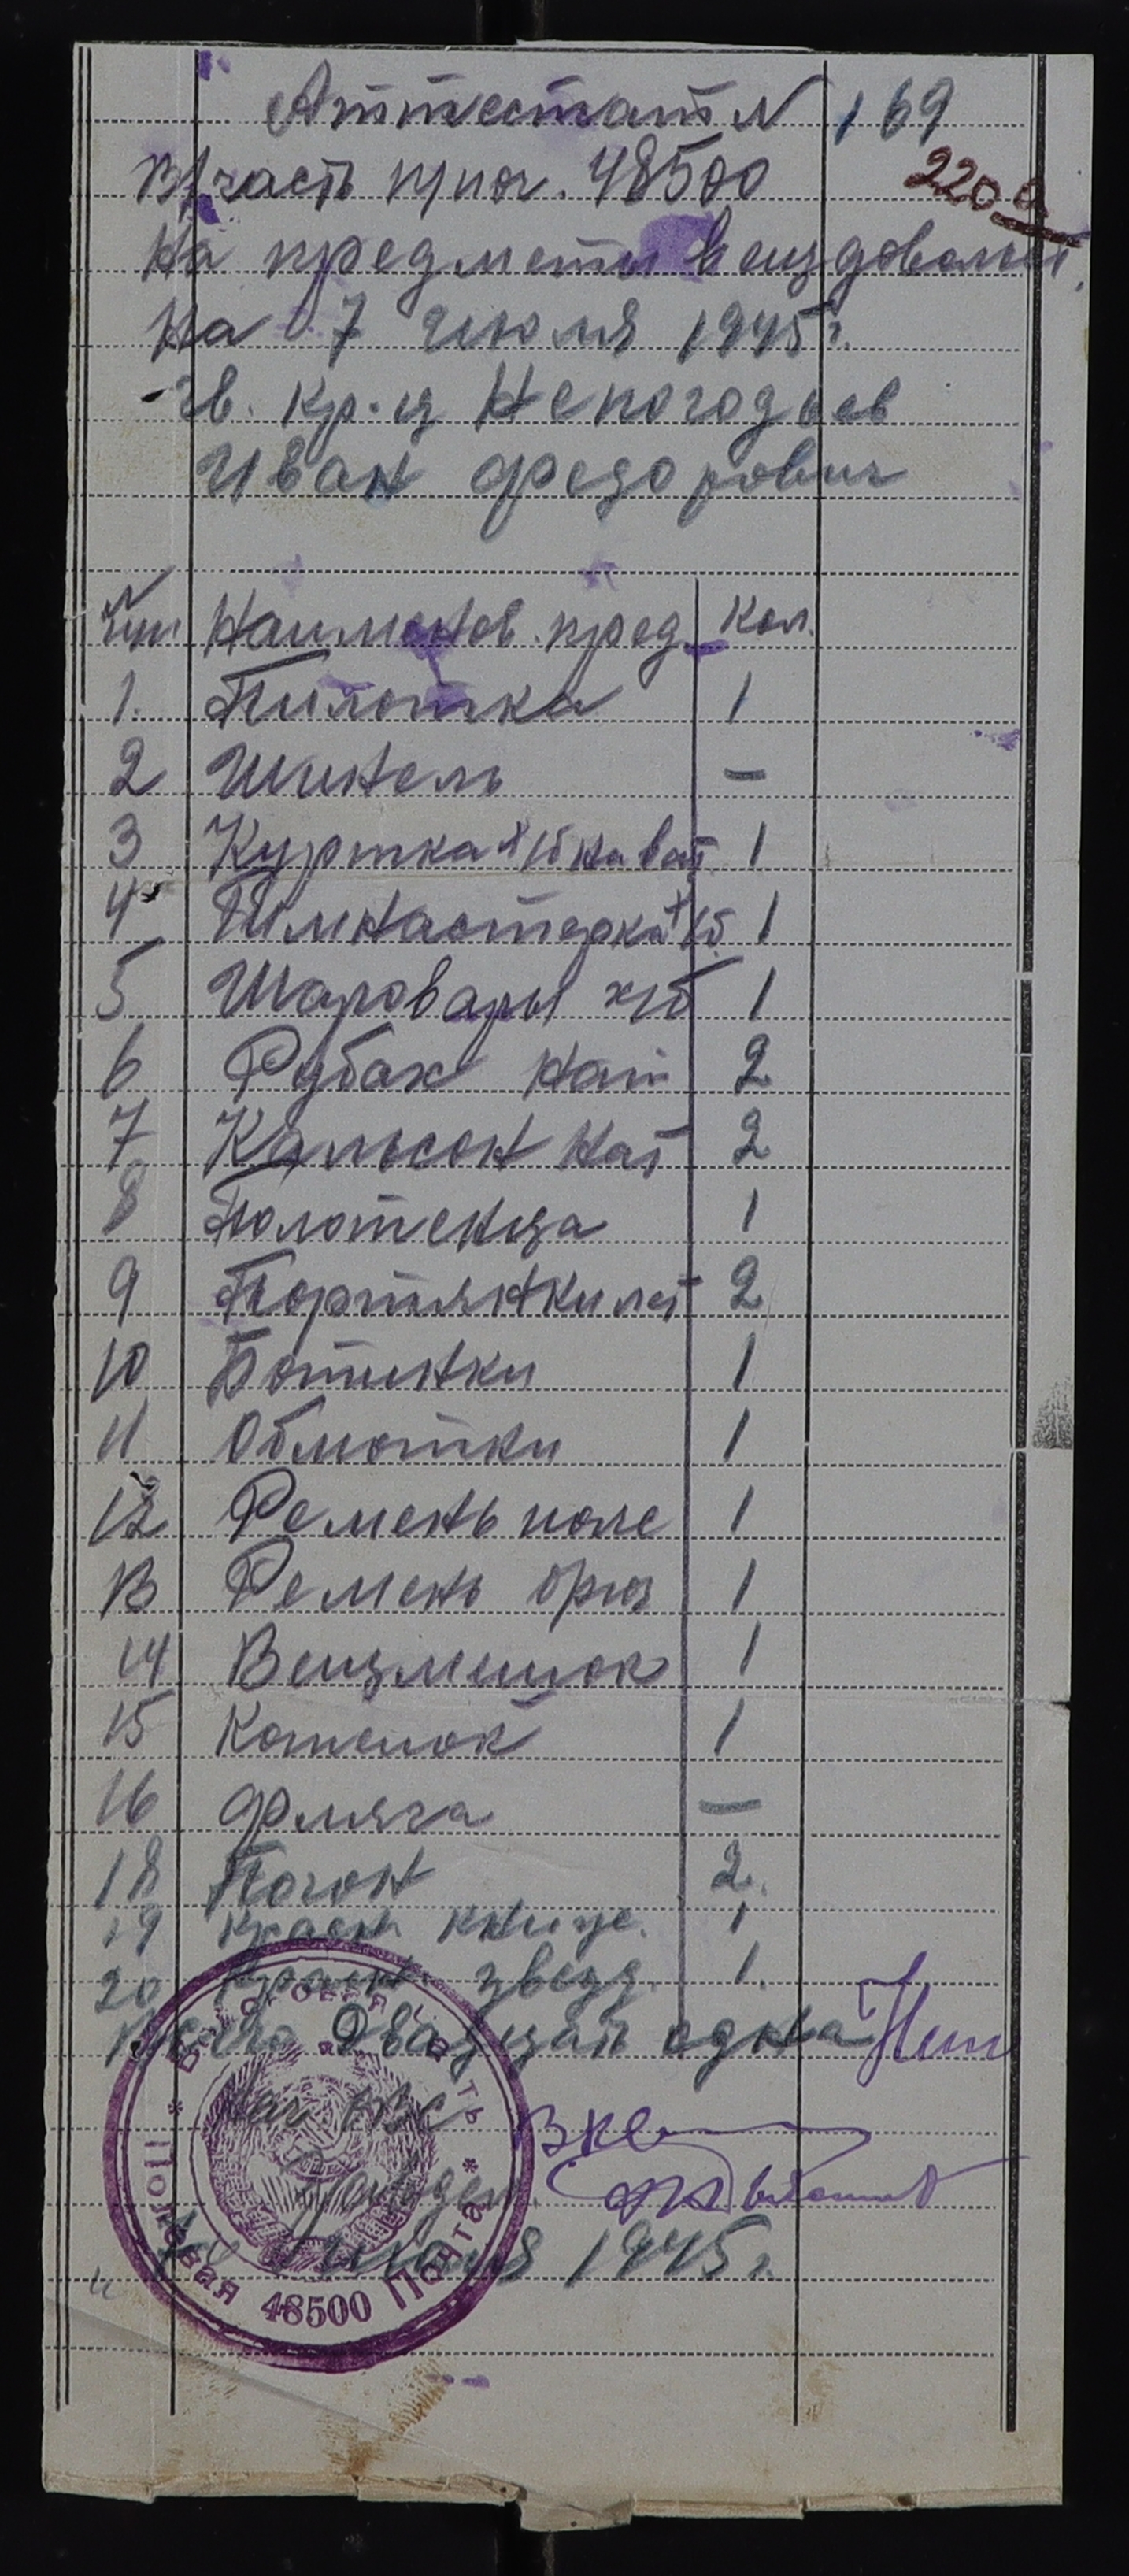 Аттестат N 169
В/часть п/поч. 48500
220
На предметы вещдовольст
На 7 Июля 1945 г.
Гв. Кр-ц Непогодьев
Иван Федорович
N п/п Наименов. пред. Кол.
1. Пилотка 1
2 Шинель —
3 Куртка х/б на ват 1
4 Гимнастерка х/б 1
5 Шаровары х/б 1
6 Рубах нат 2
7 Кальсон нат 2
8 Полотенца 1
9 Портянки лет 2
10 Ботинки 1
11 Обмотки 1
12 Ремень пояс 1
13 Ремень брюч 1
14 Вещмешок 1
15 Котелок 1
16 Фляга —
18 Погон 2.
19 Красн. книже. 1
20 Красн. звезд. 1.
Всего Двадцать одна
Нач
Июля 1945 г.
Войсковая часть * Полевая Почта * 48500